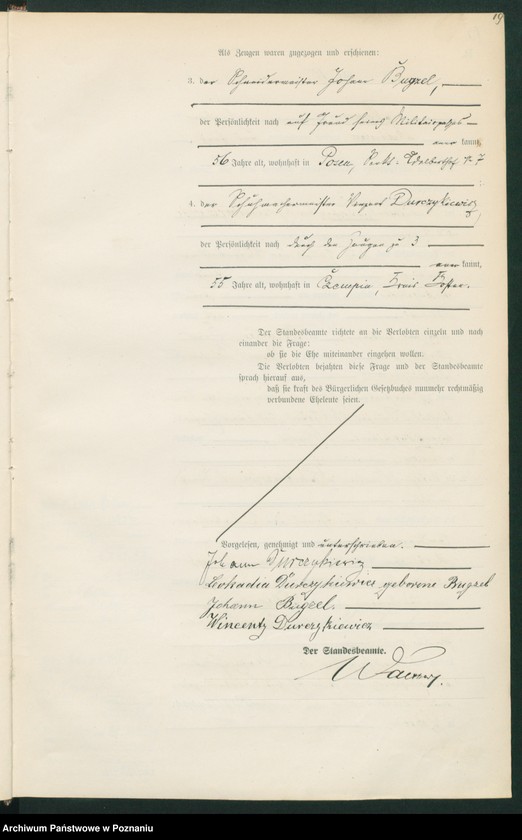 19
Als Zeugen waren zugezogen und erschienen:
3. der Schneidermeister Johann Bugzel,
der Persönlichkeit nach auf Grund seines Militairpasses
kannt,
56 Jahre alt, wohnhaft in Posen, 7
4. der Schuhmachermeister Durczykiewicz
der Persönlichkeit nach durch den Zeugen zu 3
kannt,
55 Jahre alt, wohnhaft in Czempin, Kreis Kosten.
Der Standesbeamte richtete an die Verlobten einzeln und nach
einander die Frage:
ob sie die Ehe miteinander eingehen wollen.
Die Verlobten bejahten diese Frage und der Standesbeamte
sprach hierauf aus,
daß sie kraft des Bürgerlichen Gesetzbuches nunmehr rechtmäßig
verbundene Eheleute seien.
Vorgelesen, genehmigt und unterschrieben.
Johann Durczykiewicz
Leokadia Durczykiewicz geborene Bugzel
Johann Bugzel.
Wincenty Durczykiewicz
Der Standesbeamte.
Archiwum Państwowe w Poznaniu